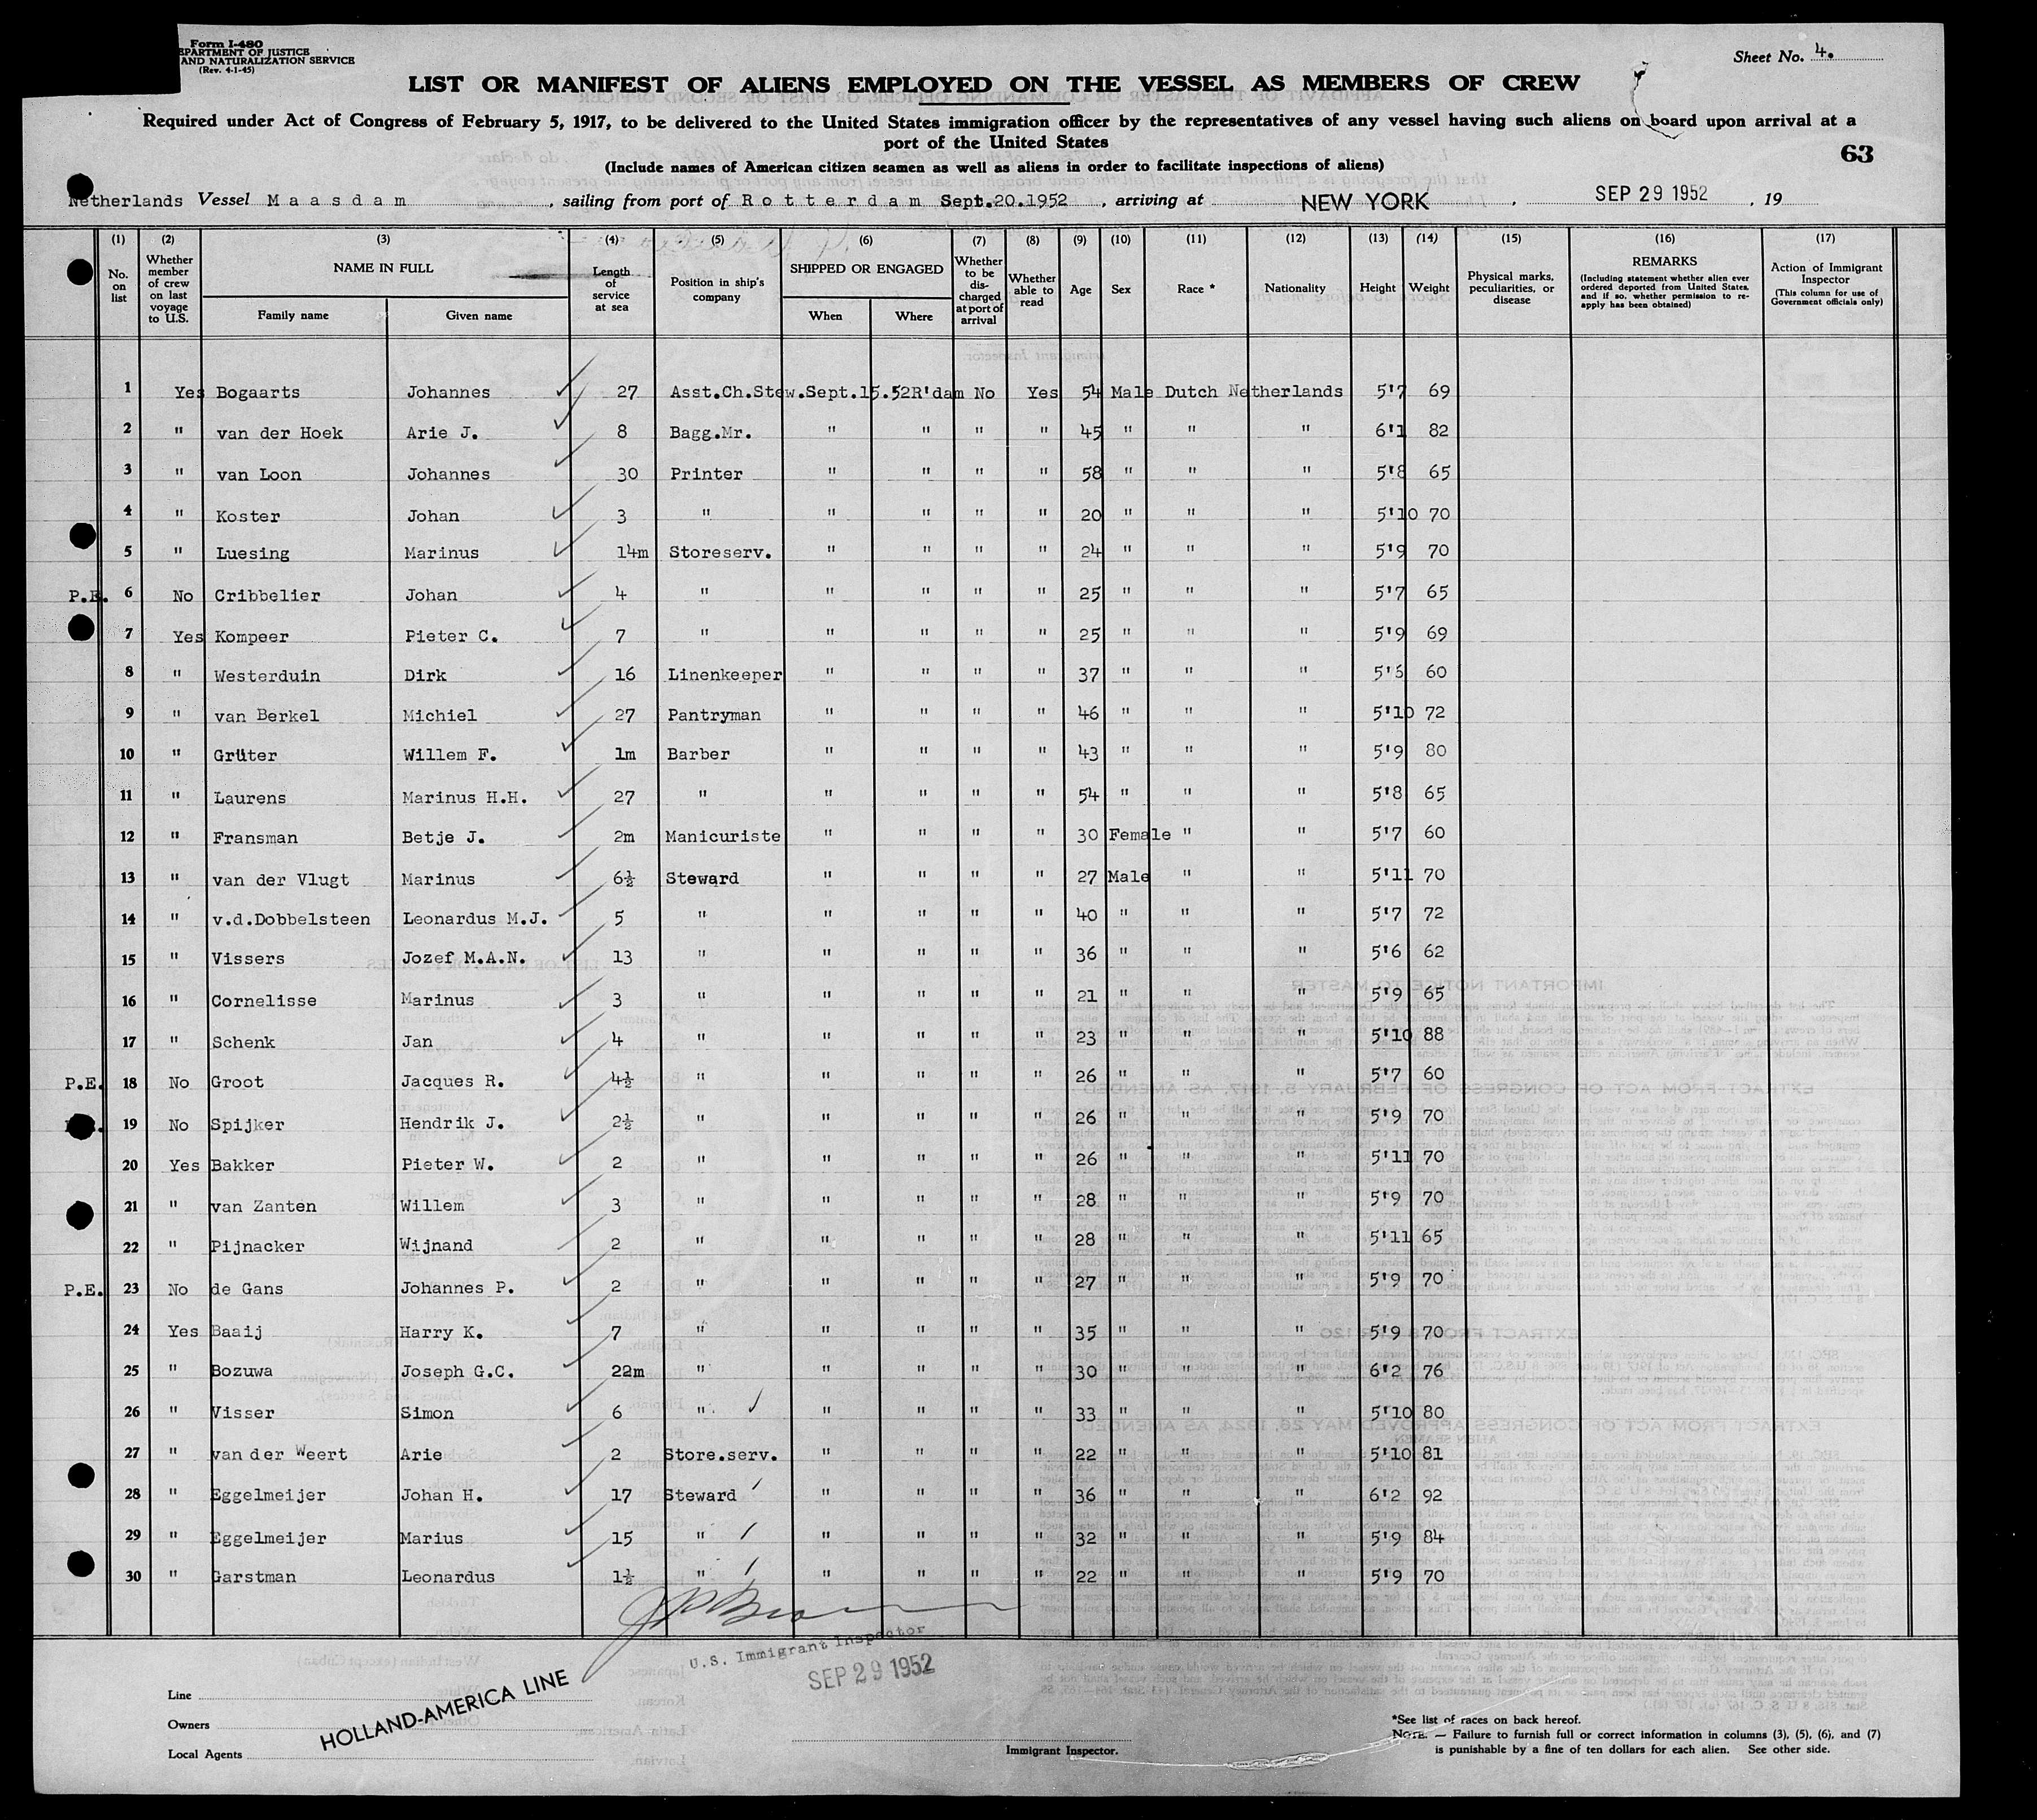 Form I-480
EPARTMENT OF JUSTICE
AND NATURALIZATION SERVICE
(Rev. 4-1-45)
Sheet No. 4.
LIST OR MANIFEST OF ALIENS EMPLOYED ON THE VESSEL AS MEMBERS OF CREW
Required under Act of Congress of February 5, 1917, to be delivered to the United States immigration officer by the representatives of any vessel having such aliens on board upon arrival at a
port of the United States
(Include names of American citizen seamen as well as aliens in order to facilitate inspections of aliens)
63
Netherlands Vessel Maasdam, sailing from port of Rotterdam Sept.20.1952, arriving at NEW YORK, SEP 29 1952, 19
(1) (2) (3) (4) (5) (6) (7) (8) (9) (10) (11) (12) (13) (14) (15) (16) (17)
No. on list
Whether member of crew on last voyage to U.S.
NAME IN FULL
Family name
Given name
Length of service at sea
Position in ship's company
SHIPPED OR ENGAGED
When
Where
Whether to be discharged at port of arrival
Whether able to read
Age
Sex
Race *
Nationality
Height
Weight
Physical marks, peculiarities, or disease
REMARKS
(Including statement whether alien ever ordered deported from United States, and if so, whether permission to reapply has been obtained)
Action of Immigrant Inspector
(This column for use of Government officials only)
1 Yes Bogaarts Johannes 27 Asst.Ch.Stew. Sept.15.52 R'dam No Yes 54 Male Dutch Netherlands 5'7 69
2 " van der Hoek Arie J. 8 Bagg.Mr. " " " " 45 " " " 6'1 82
3 " van Loon Johannes 30 Printer " " " " 58 " " " 5'8 65
4 " Koster Johan 3 " " " " " 20 " " " 5'10 70
5 " Luesing Marinus 14m Storeserv. " " " " 24 " " " 5'9 70
P.E. 6 No Cribbelier Johan 4 " " " " " 25 " " " 5'7 65
7 Yes Kompeer Pieter C. 7 " " " " " 25 " " " 5'9 69
8 " Westerduin Dirk 16 Linenkeeper " " " " 37 " " " 5'6 60
9 " van Berkel Michiel 27 Pantryman " " " " 46 " " " 5'10 72
10 " Grüter Willem F. 1m Barber " " " " 43 " " " 5'9 80
11 " Laurens Marinus H.H. 27 " " " " " 54 " " " 5'8 65
12 " Fransman Betje J. 2m Manicuriste " " " " 30 Female " " 5'7 60
13 " van der Vlugt Marinus 6½ Steward " " " " 27 Male " " 5'11 70
14 " v.d.Dobbelsteen Leonardus M.J. 5 " " " " " 40 " " " 5'7 72
15 " Vissers Jozef M.A.N. 13 " " " " " 36 " " " 5'6 62
16 " Cornelisse Marinus 3 " " " " " 21 " " " 5'9 65
17 " Schenk Jan 4 " " " " " 23 " " " 5'10 88
P.E. 18 No Groot Jacques R. 4½ " " " " " 26 " " " 5'7 60
19 No Spijker Hendrik J. 2½ " " " " " 26 " " " 5'9 70
20 Yes Bakker Pieter W. 2 " " " " " 26 " " " 5'11 70
21 " van Zanten Willem 3 " " " " " 28 " " " 5'9 70
22 " Pijnacker Wijnand 2 " " " " " 28 " " " 5'11 65
P.E. 23 No de Gans Johannes P. 2 " " " " " 27 " " " 5'9 70
24 Yes Baaij Harry K. 7 " " " " " 35 " " " 5'9 70
25 " Bozuwa Joseph G.C. 22m " " " " " 30 " " " 6'2 76
26 " Visser Simon 6 " " " " " 33 " " " 5'10 80
27 " van der Weert Arie 2 Store.serv. " " " " 22 " " " 5'10 81
28 " Eggelmeijer Johan H. 17 Steward " " " " 36 " " " 6'2 92
29 " Eggelmeijer Marius 15 " " " " " 32 " " " 5'9 84
30 " Garstman Leonardus 1½ " " " " " 22 " " " 5'9 70
U.S. Immigrant Inspector
SEP 29 1952
Line
Owners
Local Agents
HOLLAND-AMERICA LINE
Immigrant Inspector.
*See list of races on back hereof.
NOTE. — Failure to furnish full or correct information in columns (3), (5), (6), and (7)
is punishable by a fine of ten dollars for each alien. See other side.